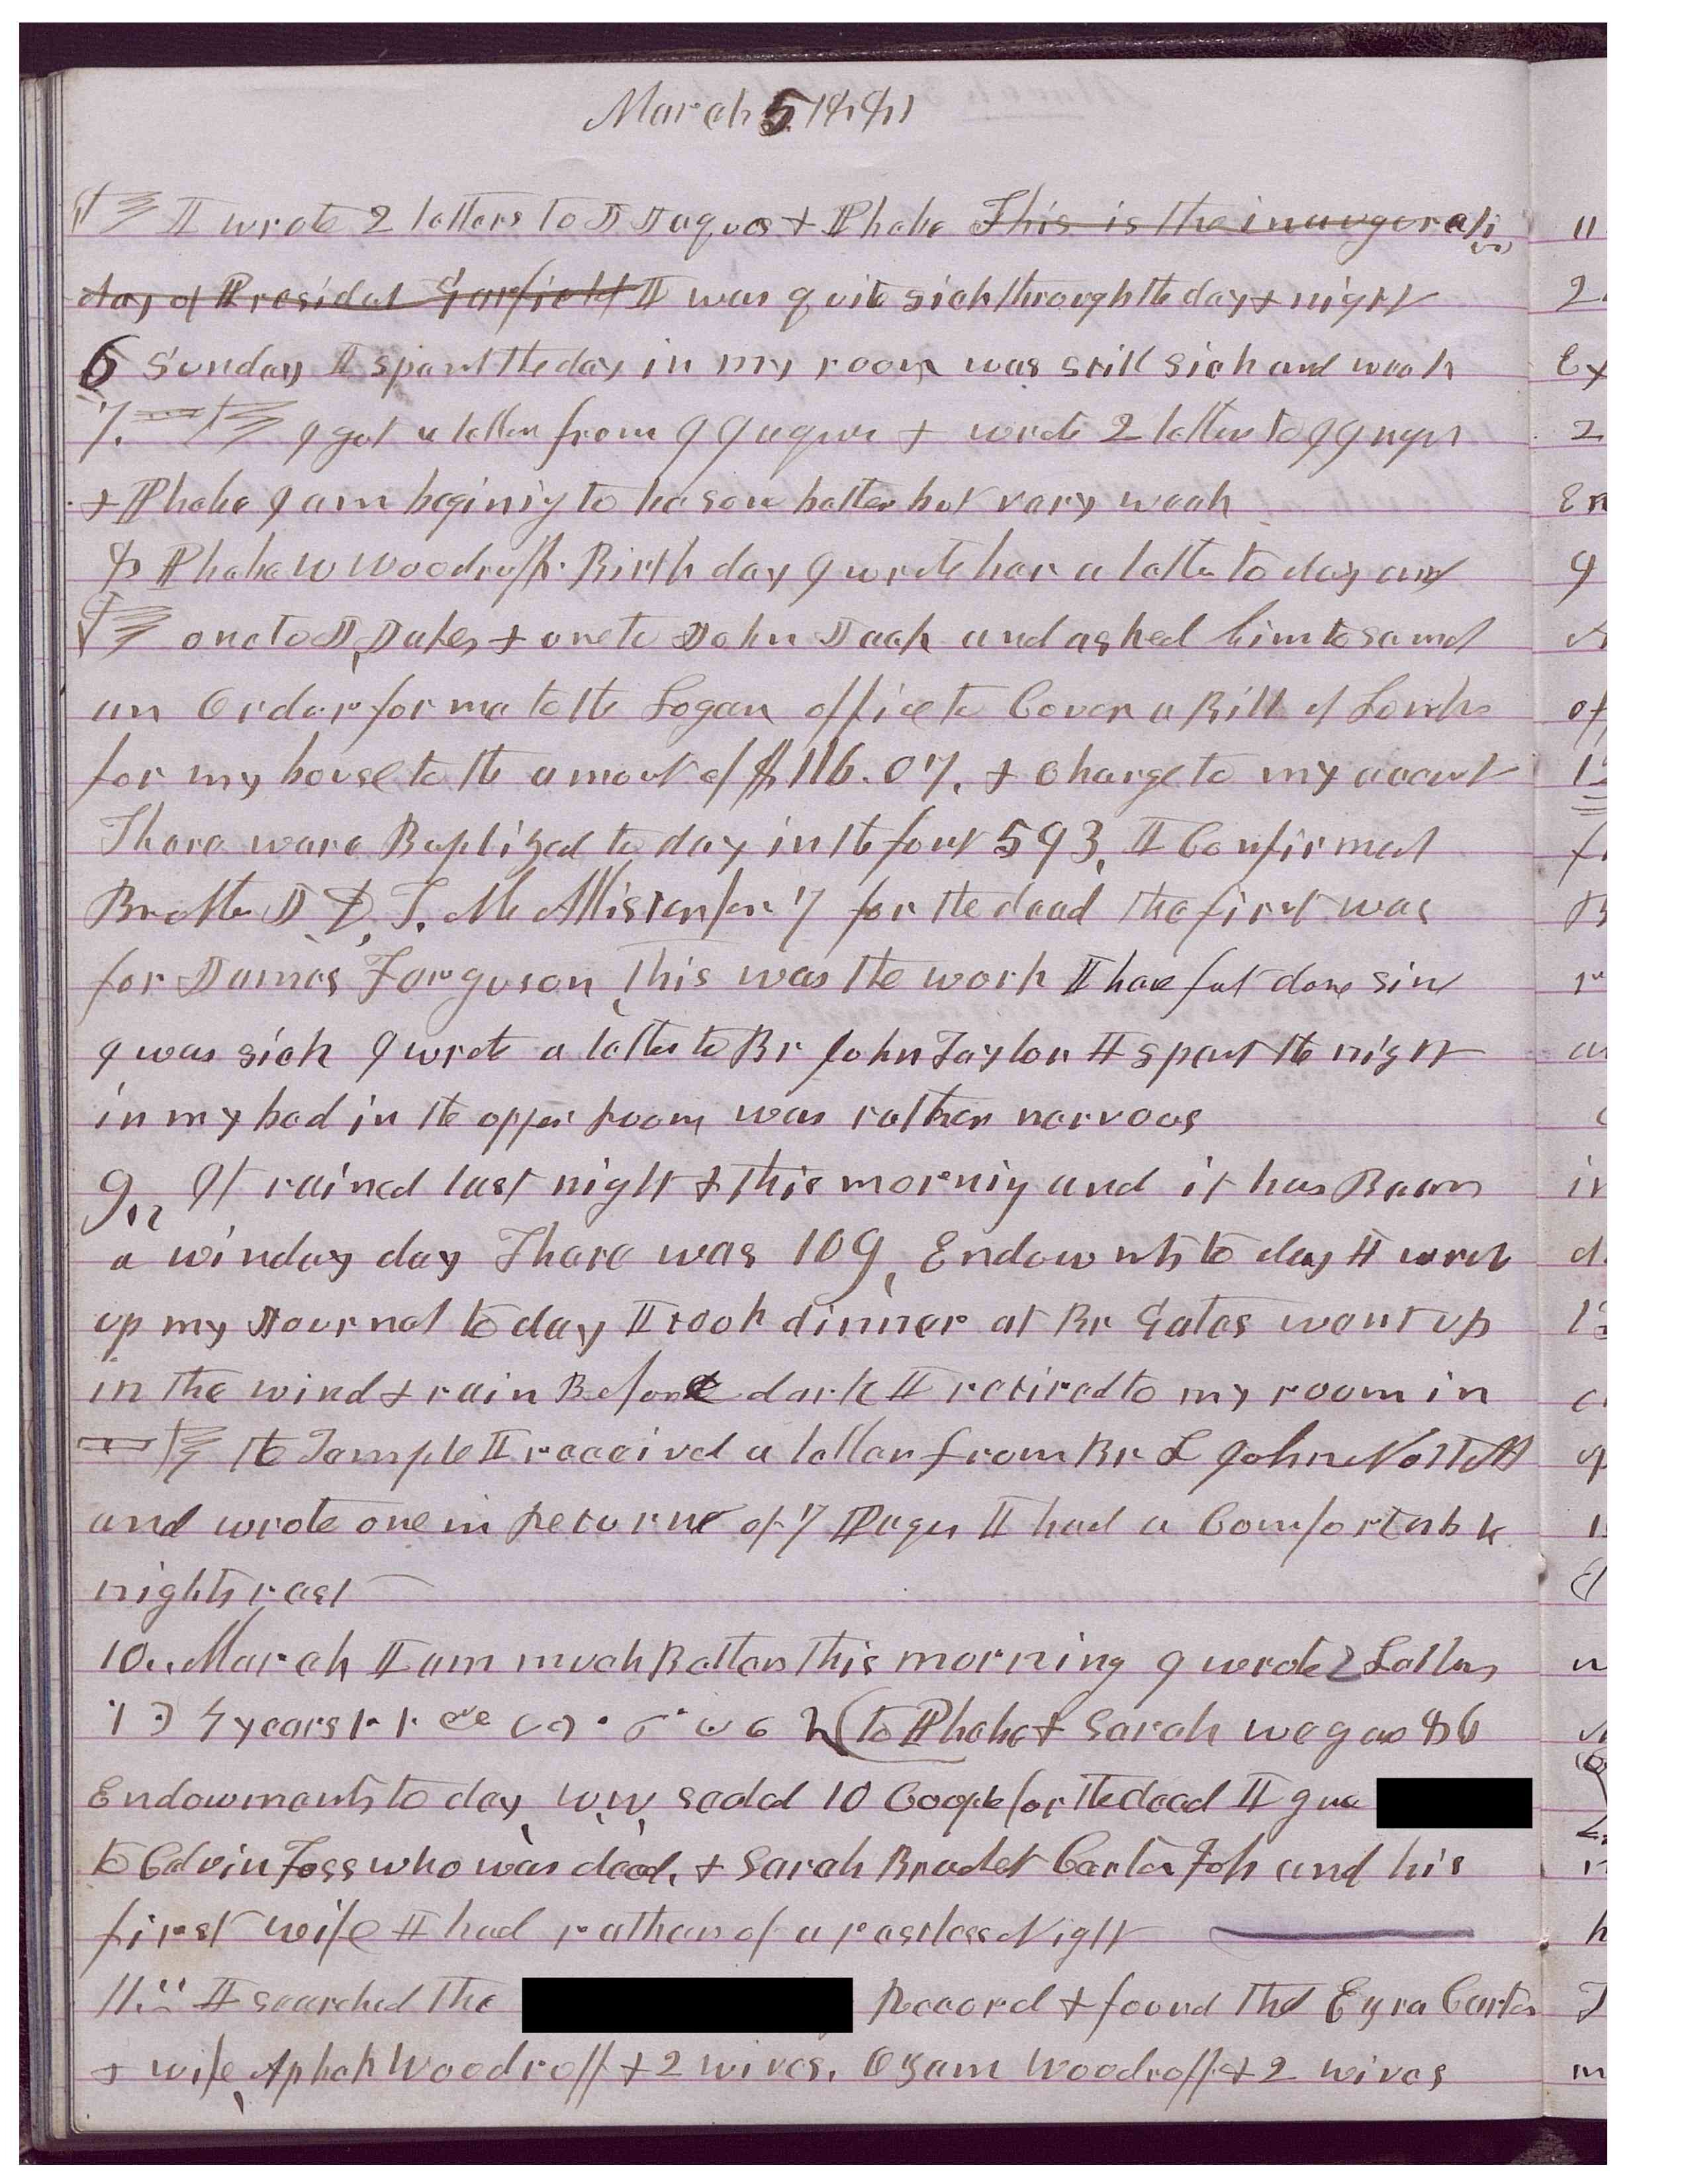 March 5 1881
I wrote 2 letters to J Jaques & Phebe This is the inaugerati
day of Presidet Garfield I was quite sick through the day & night
6 Sunday I spent the day in my room was still sick and weak
7. I got a letter from J Jaques & wrote 2 letters to J Jaqes
& Phebe I am begining to be some better but very weak
8 Phebe W Woodruffs Birth day I wrote her a letter to day and
one to J, Jakes & one to John Jack and asked him to send
an Order for me to the Logan office to Cover a Bill of
for my house to the amout of $116.07. & Charge to my acout
There were Baptized to day in the font 593, I Confirmed
Brother J D, T. McAllister for 7 for the dead the first was
for James Ferguson This was the work I have done
I was sick I wrote a letter to Br John Taylor I spent the night
in my bed in the upper Room was rather nervous
9.. It rained last night & this morning and it has Been
a winday day There was 109, Endowmts to day I wrote
up my Journal to day I took dinner at Br Gates went up
in the wind & rain Before dark I retired to my room in
the Temple I received a letter from Br L John Nuttall
and wrote one in Returne of 7 Pages I had a Comfortable
nights rest
10.. March I am much Better this morning I wrote 2 Letters
years to Phebe & Sarah we gave 86
Endowments to day, W,W, sealed 10 Couple for the dead I gave
to Calvin Foss who was dead, & Sarah Brackett Carter Foss and his
first wife I had rather of a restless Night
11.. I searched the Record & found that Ezra Carter
& wife, Aphek Woodruff & 2 wives, Ozem Woodruff & 2 wives